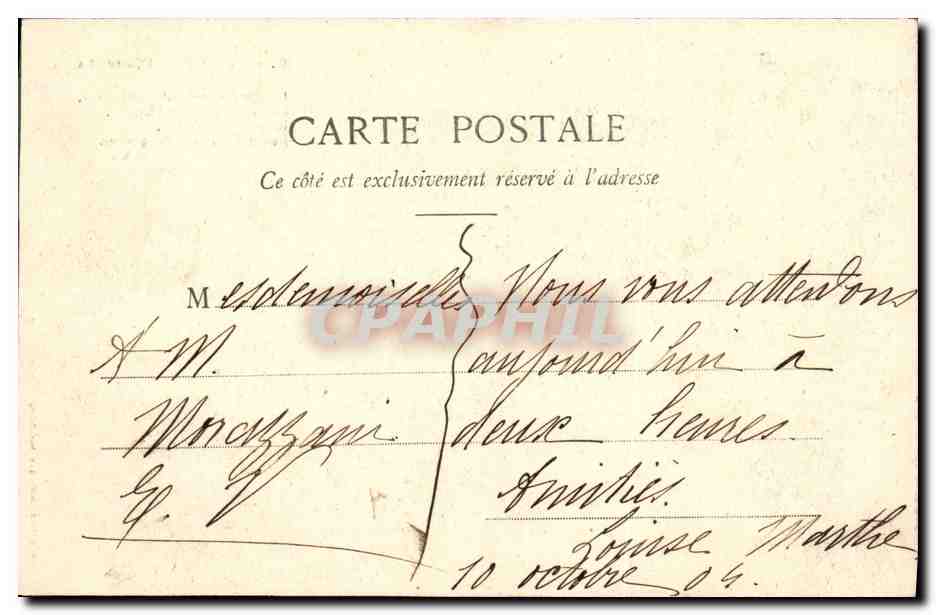 CARTE POSTALE
Ce côté est exclusivement réservé à l'adresse
Mesdemoiselles
A M.
Morazzani
E. V.
Nous vous attendons
aujourd'hui à
deux heures.
Amitiés.
Louise Marthe
10 octobre 04.
CPAPHIL